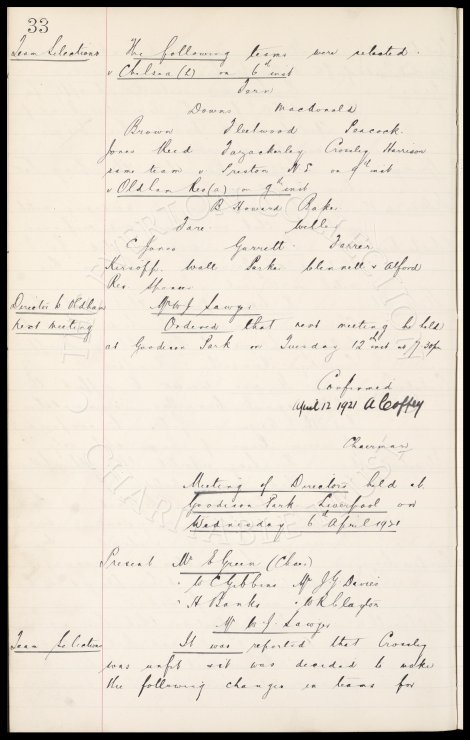 33
Team Selections
The following teams were selected.
v Chelsea (L) on 6th inst
Fern
Downs Macdonald
Brown Fleetwood Peacock
Jones Reid Fazackerley Crossley Harrison
same team v Preston N.E. on 9th inst
v Oldham Res (a) on 9th inst
B Howard Baker
Tare
C Jones Garrett Farrer
Kerscoff Wall Parker Clennell & Alford
Res Spencer
Director to Oldham
Mr W J Sawyer
next meeting
Ordered that next meeting be held
at Goodison Park on Tuesday 12th inst at 7.30pm
Confirmed
April 12 1921 A Coffey
Chairman
Meeting of Directors held at
Goodison Park Liverpool on
Wednesday 6th April 1921
Present Mr E Green (Chair)
" W C Gibbins Mr J G Davies
" H Banks " W R Clayton
Mr W J Sawyer
Team Selections
It was reported that Crossley
was unfit & it was decided to make
the following changes in teams for